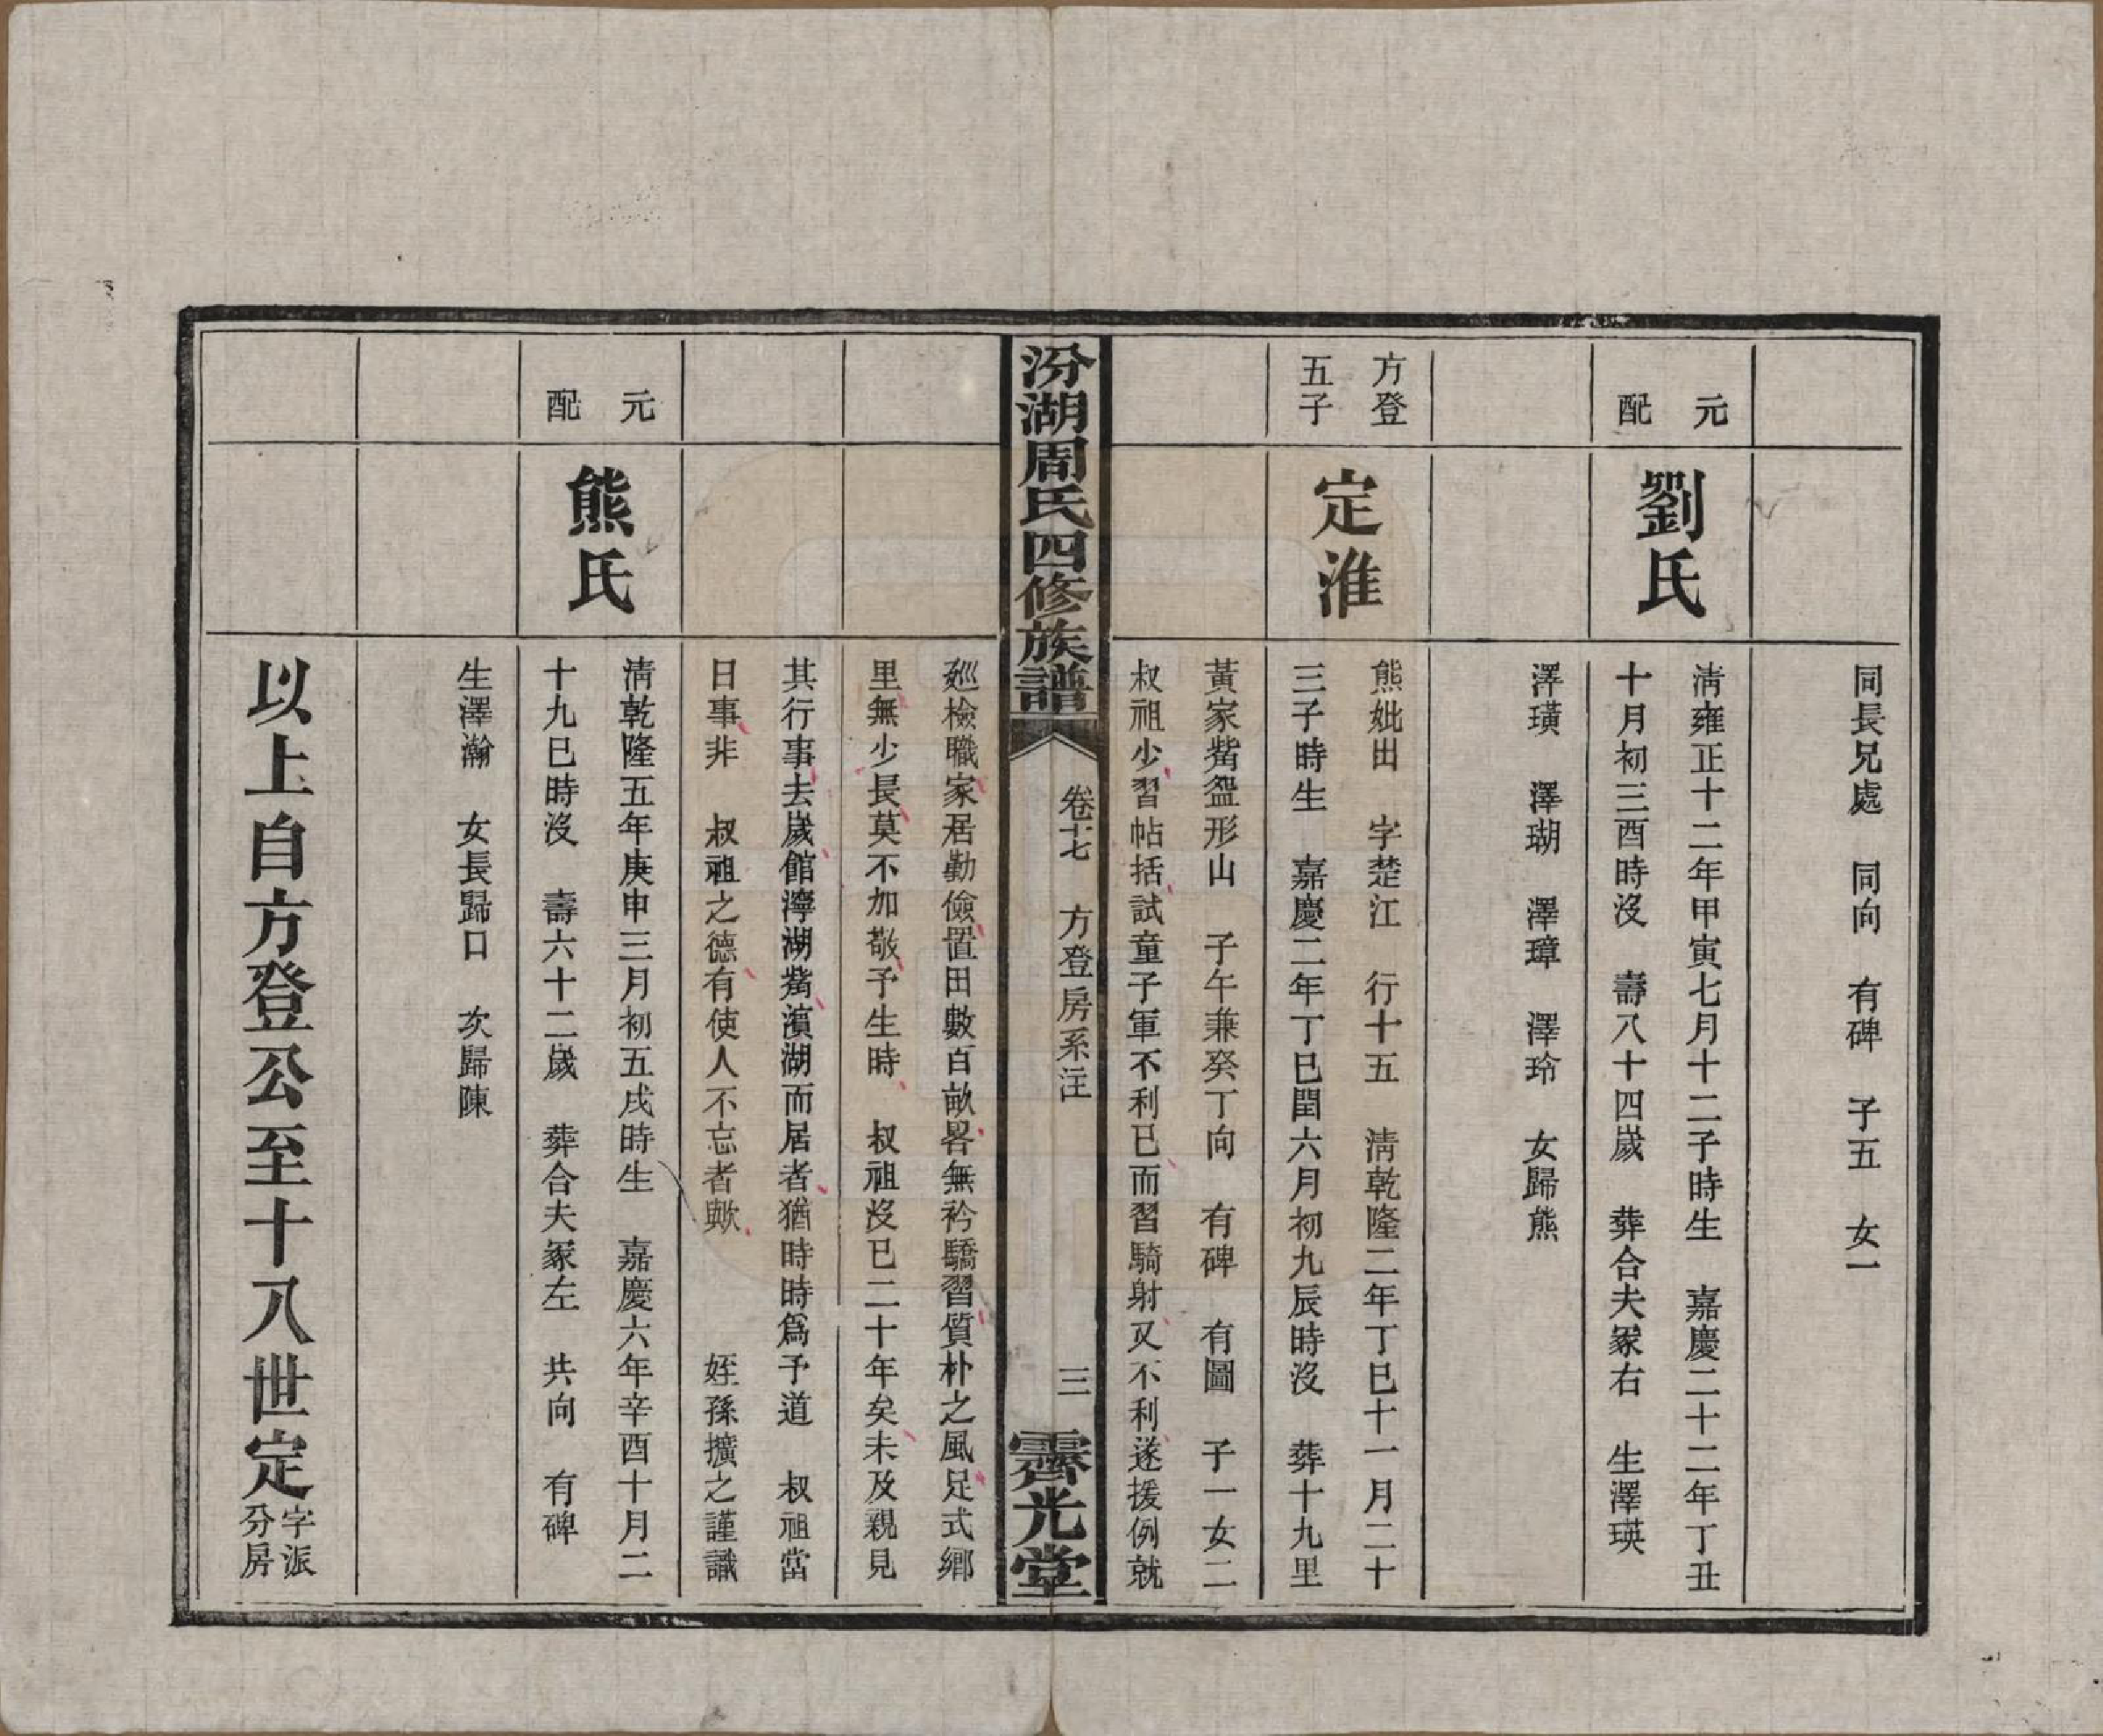 同長兄處　同向　有碑　子五　女一
元
配
劉氏
清雍正十二年甲寅七月十二子時生　嘉慶二十二年丁丑
十月初三酉時沒　壽八十四歲　葬合夫冢右　生澤瑛
澤璜　澤瑚　澤璋　澤玲　女歸熊
方登
五子
定淮
熊妣出　字楚江　行十五　清乾隆二年丁巳十一月二十
三子時生　嘉慶二年丁巳閏六月初九辰時沒　葬十九里
黃家觜盤形山　子午兼癸丁向　有碑　有圖　子一女二
叔祖少習帖括試童子軍不利已而習騎射又不利遂援例就
汾湖周氏四修族譜
卷十七　方登房系注
三
霽光堂
巡檢職家居勤儉置田數百畝畧無衿驕習質朴之風足式鄉
里無少長莫不加敬予生時　叔祖沒已二十年矣未及親見
其行事去歲館濘湖觜濱湖而居者猶時時爲予道　叔祖當
日事非　叔祖之德有使人不忘者歟　姪孫擴之謹識
元
配
熊氏
清乾隆五年庚申三月初五戌時生　嘉慶六年辛酉十月二
十九巳時沒　壽六十二歲　葬合夫冢左　共向　有碑
生澤瀚　女長歸口　次歸陳
以上自方登公至十八世定字派
分房